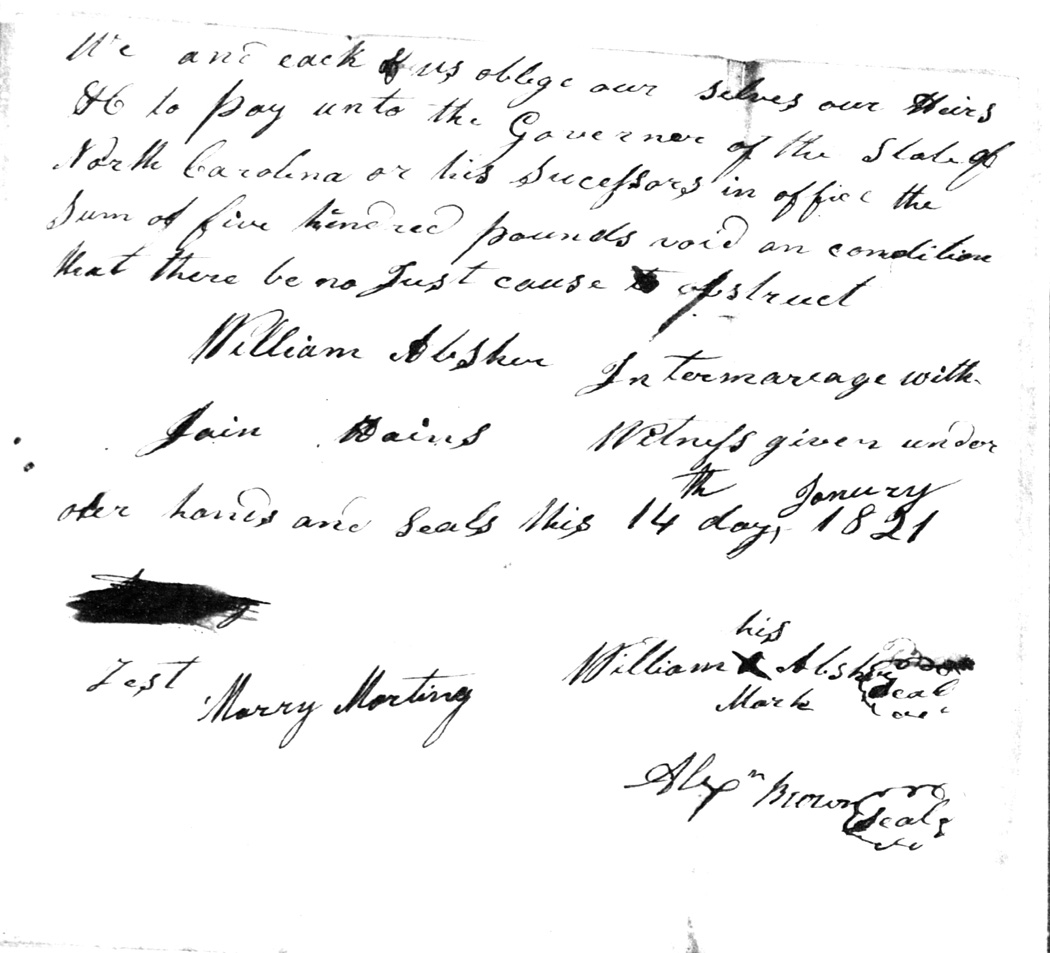 We and each of us oblege our selves our Heirs
&C to pay unto the Governer of the State of
North Carolina or his Sucessors in office the
Sum of five hundred pounds void on condition
that there be no Just cause to obstruct
William Absher Intermareage with
Jain Rains Witness given under
our hands and Seals this 14th day, Jonury 1821
his
William X Absher Seal
Mark
Test Marry Morting
Alexn Brown Seal